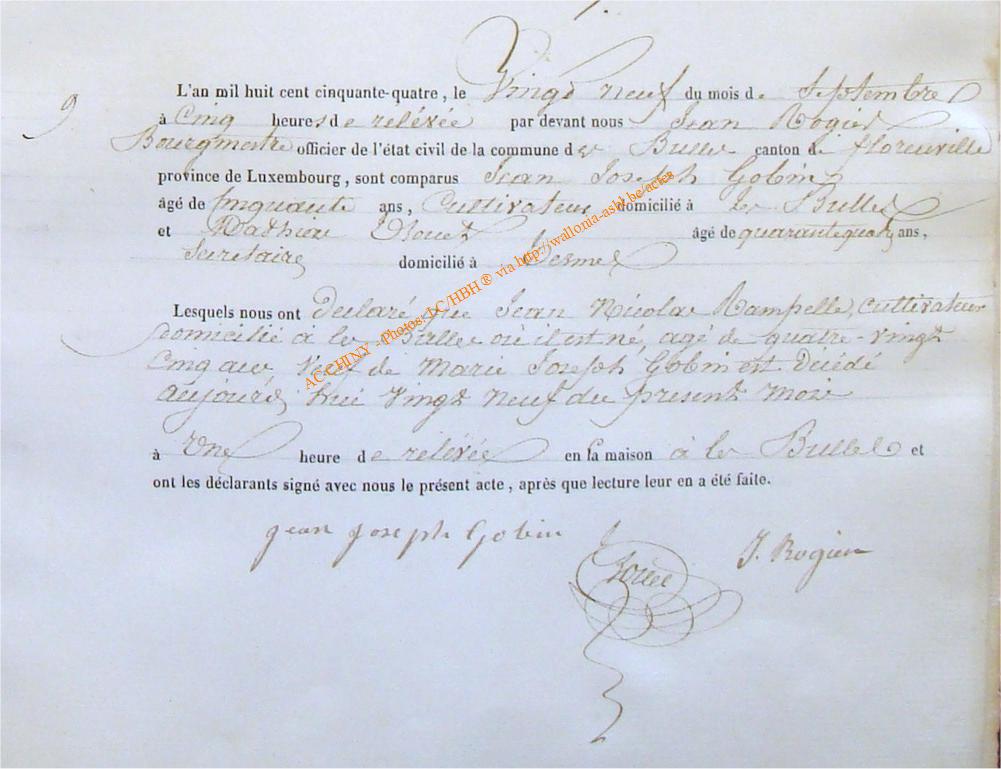 9
L'an mil huit cent cinquante-quatre, le Vingt neuf du mois de Septembre
à Cinq heures de relévée par devant nous Jean Rogier
Bourgmestre officier de l'état civil de la commune de Bulles canton de florenville
province de Luxembourg, sont comparus Jean Joseph Gobin
âgé de cinquante ans, Cultivateur domicilié à les Bulles
et Mathieu âgé de quarante quatre ans,
Secretaire domicilié à Termes
Lesquels nous ont declaré que Jean Nicolas Rampelle, cultivateur
domicilié à les Bulles où il est né, agé de quatre-vingt
Cinq ans Veuf de Marie Joseph Gobin est Décédé
aujourd hui Vingt neuf du present mois
à Une heure de relévée en sa maison à les Bulles et
ont les déclarants signé avec nous le présent acte, après que lecture leur en a été faite.
jean joseph Gobin J. Rogier
ACCHINY - Photos: LC/HBH® via http://wallonia-asbl.be/actes